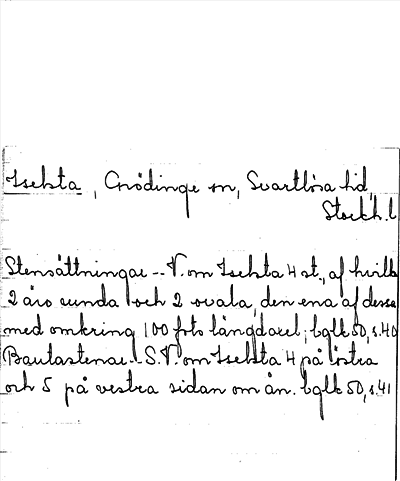 Iselsta, Grödinge sn, Svartlösa hd,
Stockh.l
Stensättningar -- V. om Iselsta 4 st., af hvilk
2 äro runda och 2 ovala, den ena af dessa
med omkring 100 fots längdaxel; bglt 50, s.40
Bautastenar -- S.V. om Iselsta 4 på östra
och 5 på vestra sidan om ån. bglt 50, s.41